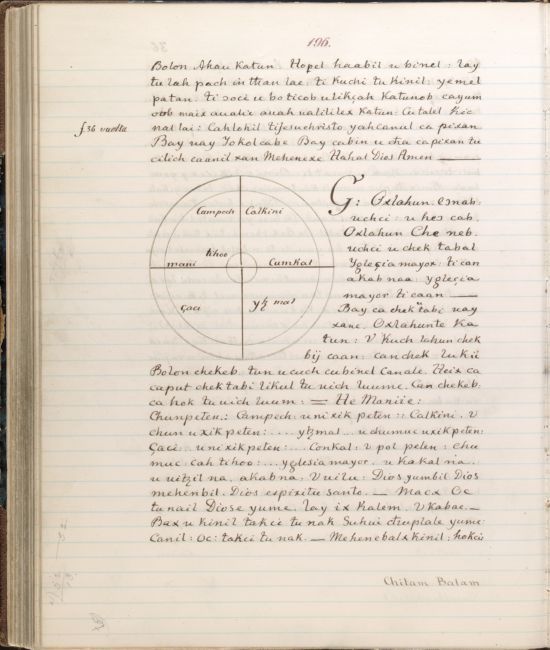 196.
Bolon Ahau Katun: Hopel haabil u binel: lay
tu lah pach in than lae: ti Kuchi tu Kinil: yemel
patan. ti ɔoci u boticob u likçah Katunob cayum
oob maix aualix auah ualililex Katun: Cu talel Kic
f 36 vuelta
nal lai: Cahlohil ti Jesuchristo yahcanul ca pixan
Bay uay Yokolcabe Bay cabin u cha ca pixan tu
cilich caanil xan Mehenexe Hahal Dios Amen —
Campech Calkini
tihoo
mani Cumkal
çaci yɥ mal
G: Oxlahun. Ɔnab:
uchci: u heɔ cab.
Oxlahun Che neb.
uchci u chek tabal
Yglesia mayor: ti can
akab naa: yglesia
mayor ti caan —
Bay ca chek tabi uay
xane. Oxlahunte Ka
tun: V Kuch lahun chek
bij caan: can chek lukii
Bolon chekeb. tun u cuch cu binel Canale. Heix ca
caput chek tabi likul tu uich luume. Can chekeb.
ca hok tu uich luum: = He Maniie:
Chunpeten: Campech: u ni xik peten:: Calkini. V
chun u xik peten: .... yɥmal... u chumuc u xik peten:
Çaci: u ni xik peten: ... Conkal: V pol peten: chu
muc cah tihoo: ... yglesia mayor. u Kakal na..
u uitzil na. akabna: V uilu: Dios yumbil Dios
mehenbil. Dios espiritu santo. — Macx Oc
tu nail Diose yume. lay ix Kalem. V Kabae. —
Bax u kinil takci tu nak Suhui chuplale yume:
Canil: Oc: takci tu nak. — Mehenebalx kinil: hokci
Chilam Balam